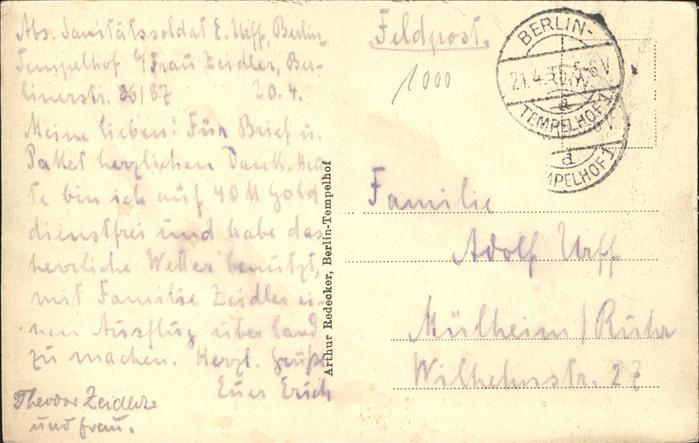 Abs. Sanitätssoldat E. Urff, Berlin
Tempelhof b/ Frau Zeidler, Ber-
linerstr. 86/87 20.4.
Meine lieben! Für Brief u.
Paket herzlichen Dank. Heu-
te bin ich auf 40 M Gold
dienstfrei und habe das
herrliche Wetter benutzt,
mit Familie Zeidler ei-
nen Ausflug über land
zu machen. Herzl. Grüße
Euer Erich
Theodor Zeidler
und Frau.
Arthur Redecker, Berlin-Tempelhof
Feldpost.
1000
BERLIN-
21.4. 5-6 V
a
TEMPELHOF 1
a
TEMPELHOF 1
Familie
Adolf Urff
Mülheim/Ruhr
Wilhelmstr. 27